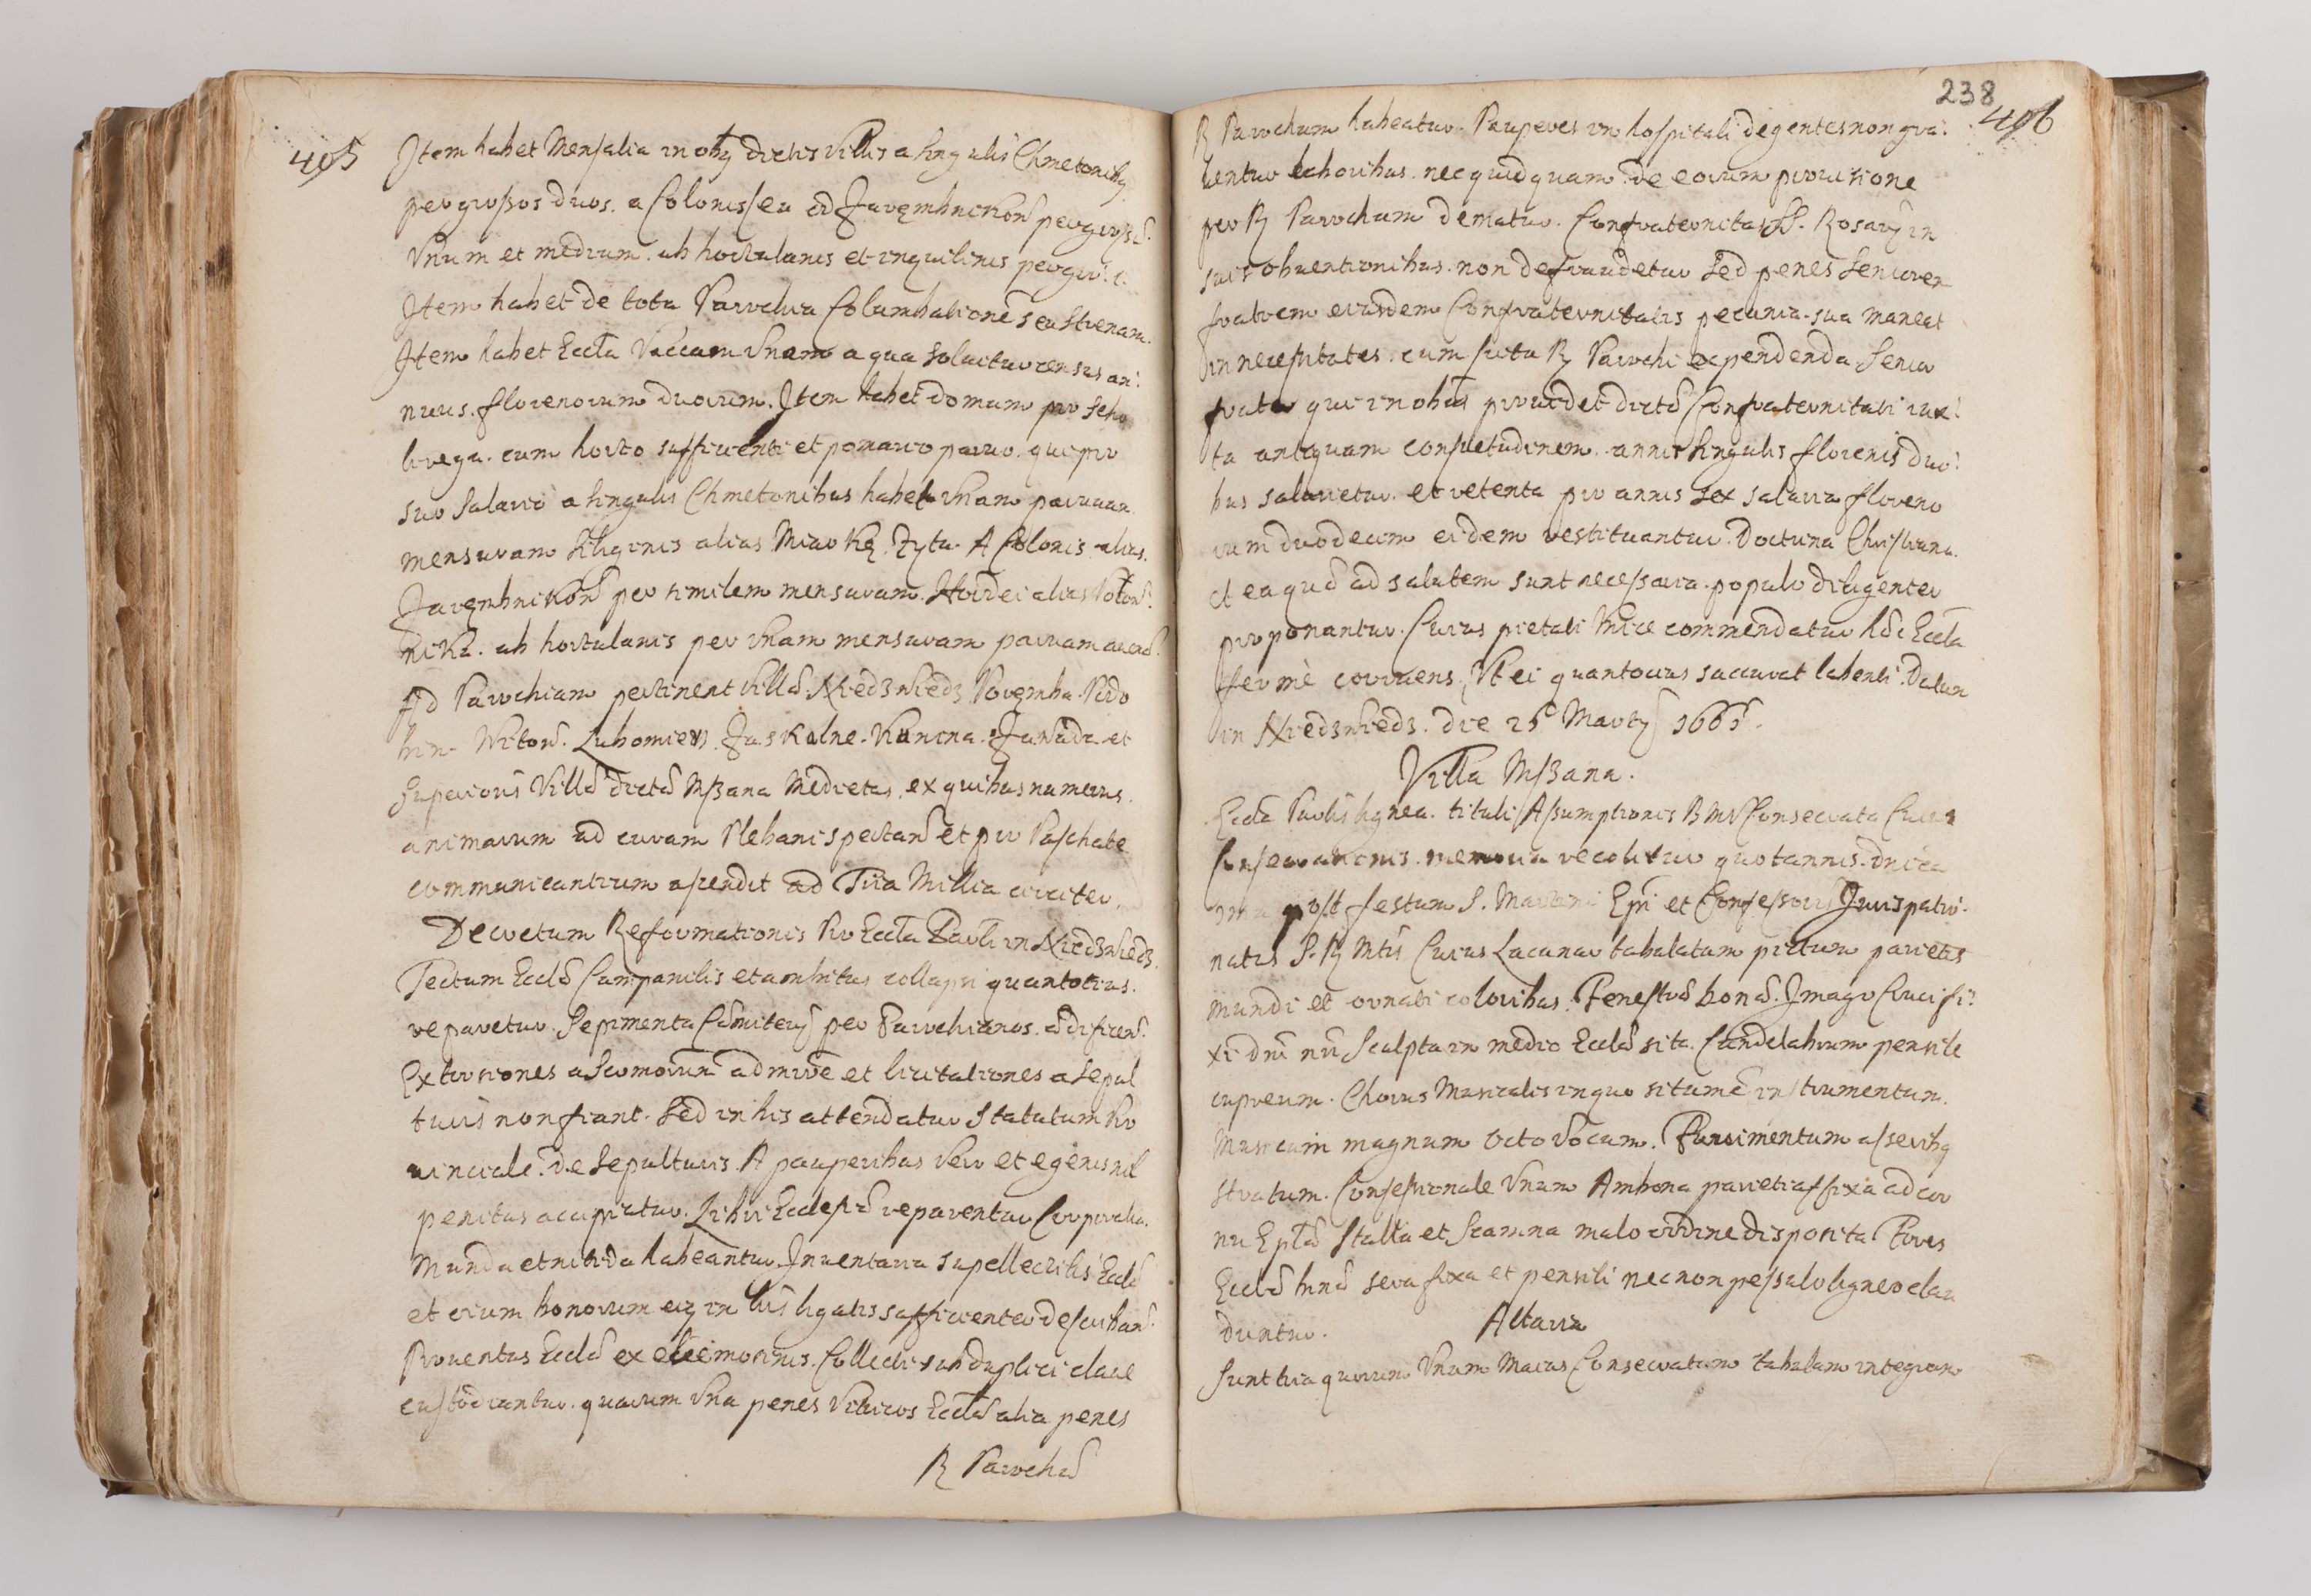 405
Item habet Mensalia in oibq dictis Villis a singulis Chmetonibq
per grossos duos. a Colonis seu od Zarembnikow per gross:
Vnum et medium. ab hortulanis et inquilinis per gro: 1.
Item habet de tota Parochia Columbatione seu Strenam.
Item habet Eccla Vaccam Vnam a qua soluitur census an:
nuus. florenorum duorum. Item habet domum pro Scho
lirega. cum horto sufficienti et pomario paruo. qui pro
suo Salario a singulis Chmetonibus habet Vnam paruam
mensuram Siliginis alias Miarkę Zyta. A Colonis alias.
Zarembnikow per similem mensuram. Hordei alias
nika. ab hortulanis per Vnam mensuram paruam auenę.
Ad Parochiam pertinent Villę. Niedzwiedz Poręmba. Podo
bin. Witow. Lubomierz. Jaskalne. Konina. Zawada et
Superioris Villę dictę Mszana Medietas. ex quibus numerus.
animarum ad curam Plebani spectań et pro Paschate
communicantium asendit ad Tria Millia circiter.
Decretum Reformationis Pro Eccla Paroli in Niedzwiedz.
Tectum Ecclę Campanilis et ambitus collapsi quantotius.
reparetur. Sepimenta Cęmiterij per Parochianos. ędificenť.
Extorsiones a Scomorum admire et licitationes a sepul
turis non fiant. Sed in his attendatur Statutum Pro
uinciale. de Sepulturis. A pauperibus Vero et egenis nil
penitus accipiatur. Libri Ecclesię reparentur Corporalia.
Munda et nitida habeantur. Inuentaria supellectilis Ecclę
et oium bonorum eiq in lris ligatis sufficienter describanť.
Prouentus Ecclę ex elemosinis. Collecti sub duplici claue
custodiantur. quarum Vna penes Vitricos Ecclę alia penes
R Parochũ
238
406
R Parochum habeatur. Pauperes in hospitali degentes non gra:
uentur laboribus. nec quidquam. de eorum prouisione
per R Parochum dematur. Confraternitas SS. Rosarij in
suis obuentionibus. non defraudetur Sed penes Seniorem
fratrem eiusdem Confraternitatis pecunia sua maneat
in necessitates. cum scitu R Parochi expendenda. Senior
frater qui in obus prouidet dictę Confraternitati iux:
ta antiquam consuetudinem. annis singulis florenis duo:
bus salarietur. et retenta pro annis sex salaria floreno
rum duodecim eidem restituantur. Doctrina Christiana.
et ea quę ad salutem sunt necessaria. populo diligenter
proponantur. Cuius pietati Vnice commendatur hęc Eccla
ferme corruens, Vt ei quantocius succurat labenti. Datum
in Niedzwiedz. die 25 Martij 1665.
Villa Mszana.
Eccla Parolis lignea. tituli Assumptionis BMV Consecrata Cuius
Consecrationis. memoria recolitur quotannis. Dnica
post festum S. Martini Epi et Confessoris Juris patro:
natus S. R Mtis Cuius Lacunar tabulatum pictum parietes
mundi et ornati coloribus. Fenestrę bonę. Imago Crucifi:
xi dni nri Sculpta in medio Ecclę sita. Candelabrum pensile
cupreum. Chorus Musicalis in quo situm e instrumentum.
Musicum magnum Octo Vocum. Pauimentum asseribq
stratum. Confessionale Vnum Ambona parieti affixa ad cor
nu Eplę Stalla et Scamna malo ordine disposita Fores
Ecclę binę sera fixa et pensili nec non pessulo ligneo clau
duntur.
Altaria
Sunt tria quorum Vnum Maius Consecratum tabulam integram